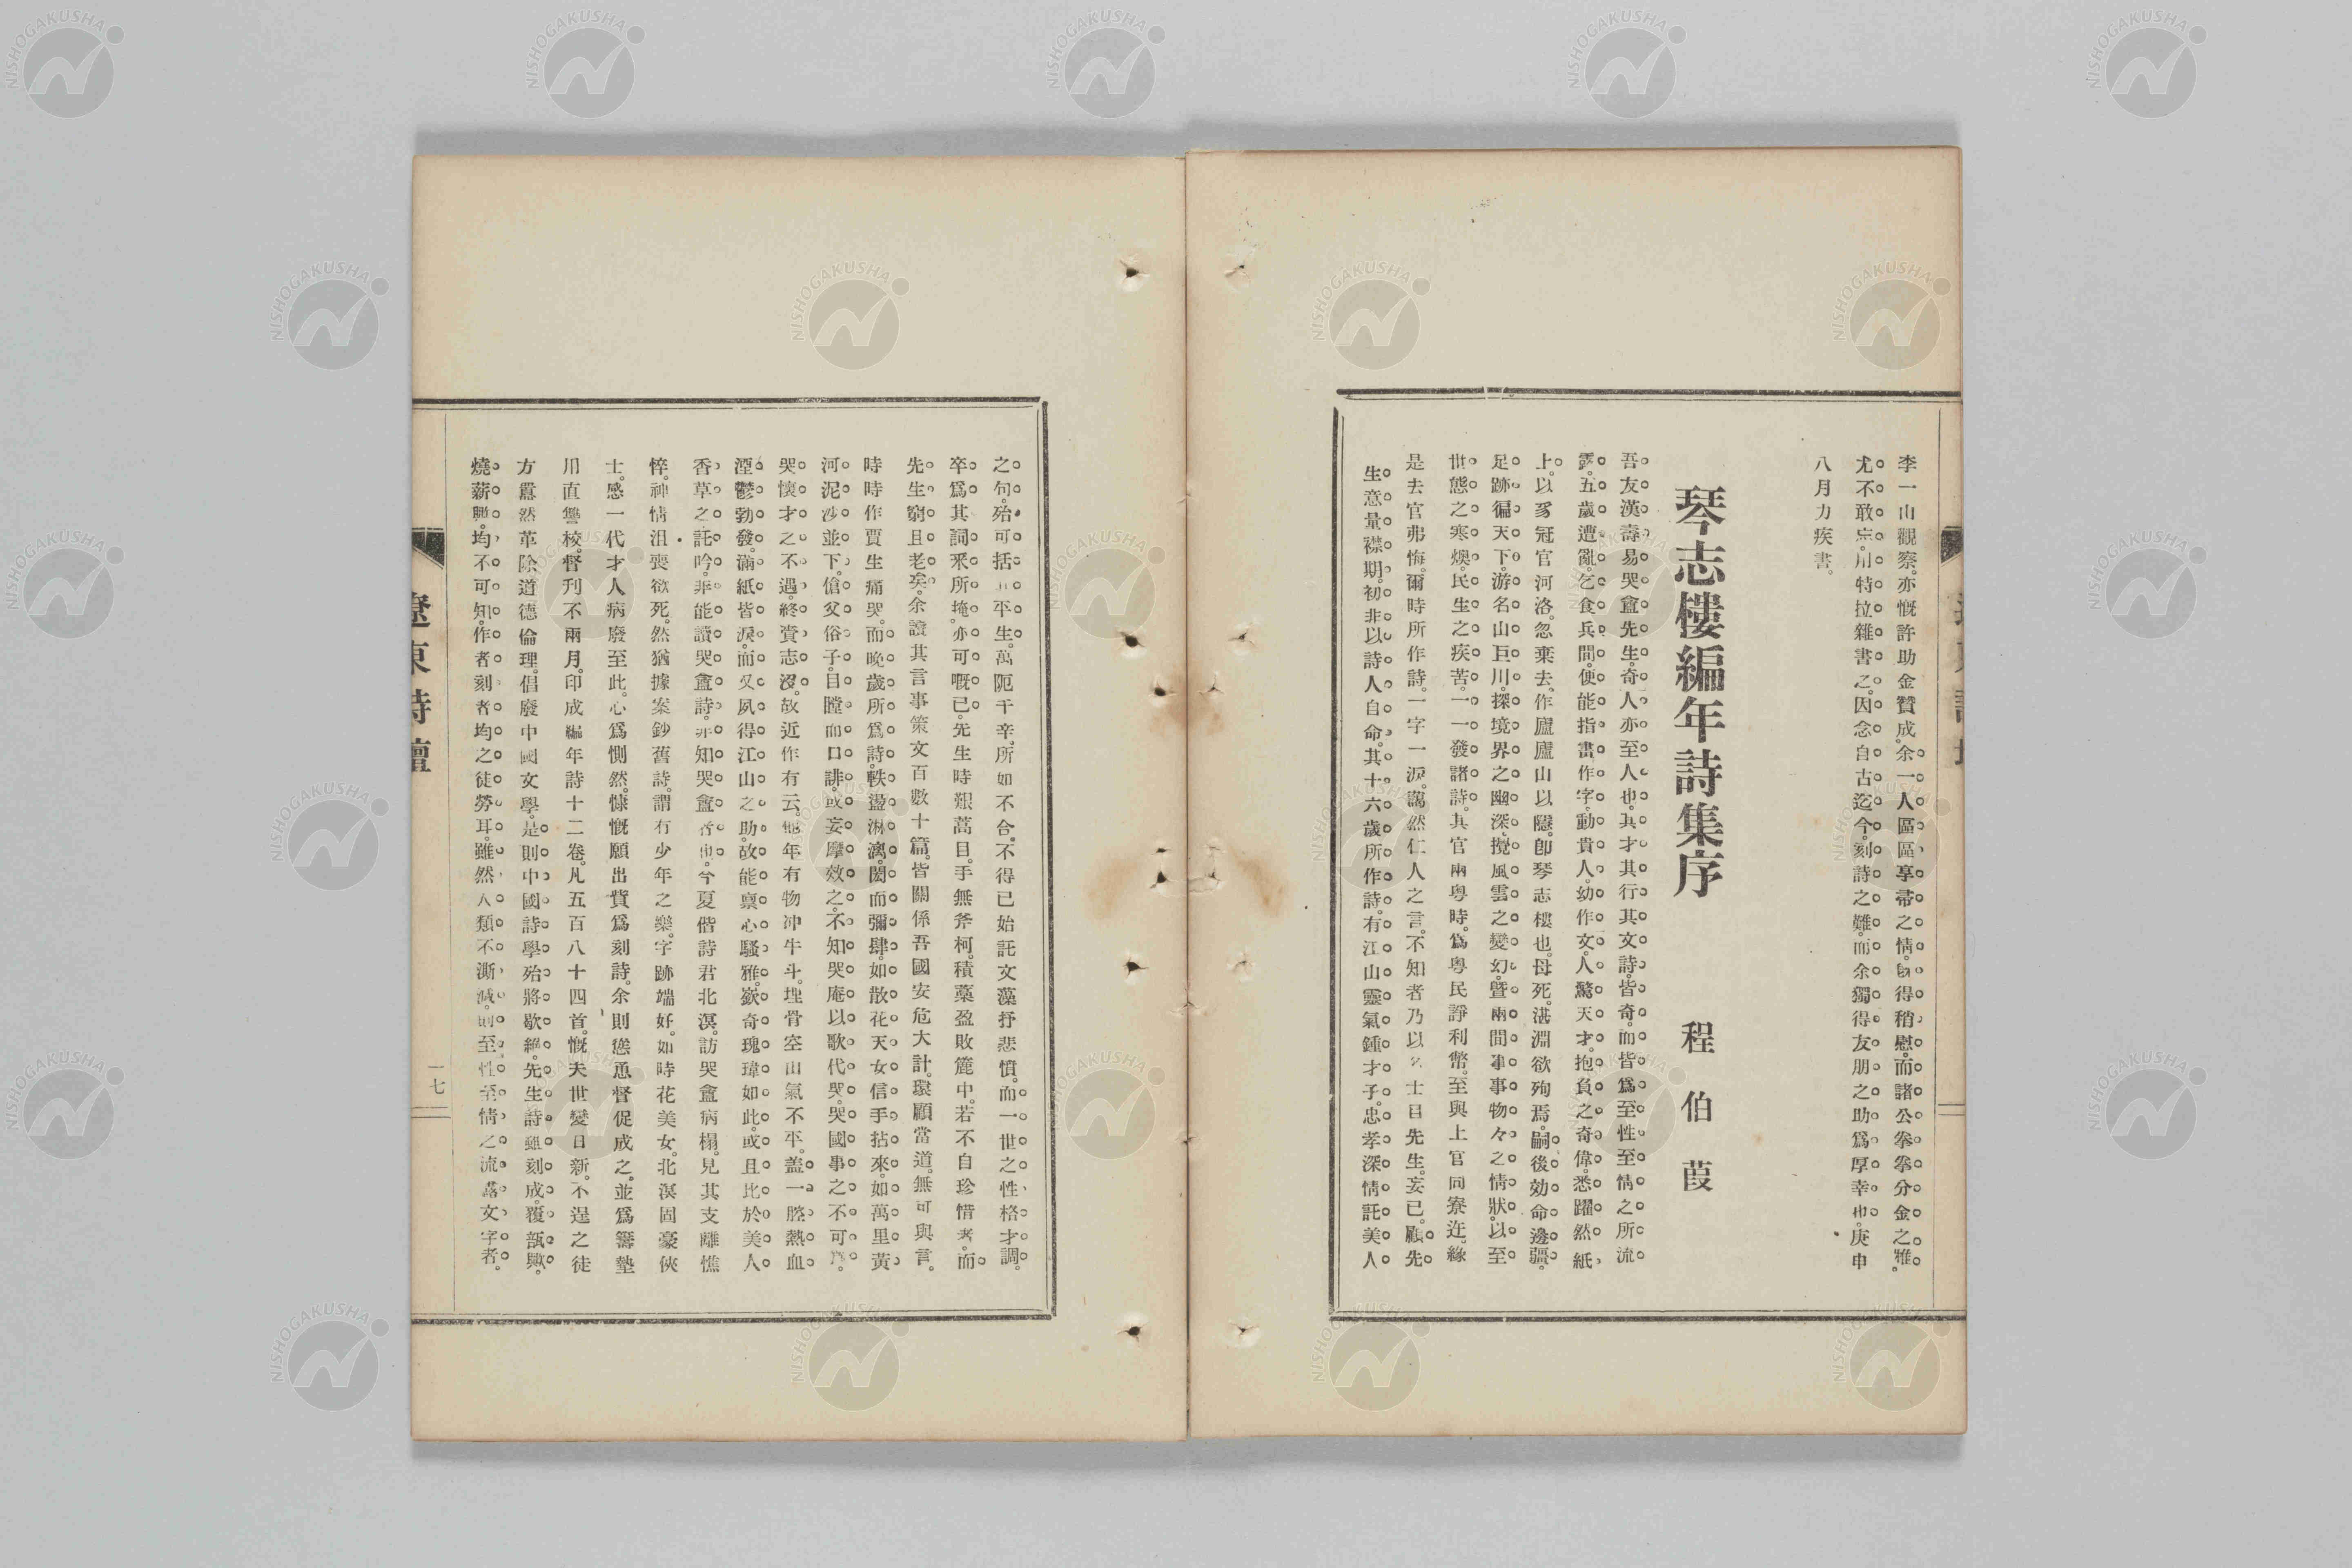 李一山觀察。亦慨許助金贊成。余一人區區享帚之情。自得稍慰。而諸公拳拳分金之雅。
尤不敢忘。用特拉雜書之。因念自古迄今。刻詩之難。而余獨得友朋之助爲厚幸也。庚申
八月力疾書。
琴志樓編年詩集序
程伯葭
吾友漢壽易哭盦先生。奇人亦至人也。其才其行其文詩。皆奇。而皆爲至性至情之所流
露。五歲遭亂。乞食兵間。便能指書作字。動貴人。幼作文。人驚天才。抱負之奇偉。悉躍然紙
上。以豸冠官河洛。忽棄去。作廬廬山以隱。卽琴志樓也。母死。湛淵欲殉焉。嗣後効命邊疆。
足跡徧天下。游名山巨川。探境界之幽深。攬風雲之變幻。曁兩間事事物々之情狀。以至
世態之寒燠。民生之疾苦。一一發諸詩。其官兩粤時。爲粤民諍利幣。至與上官同寮迕。緣
是去官弗悔。爾時所作詩。一字一淚。藹然仁人之言。不知者乃以名士目先生。妄已。顧先
生意量襟期。初非以詩人自命。其十六歲所作詩。有江山靈氣鍾才子。忠孝深情託美人
之句。殆可括平生。萬阨千辛。所如不合。不得已始託文藻抒悲憤。而一世之性格才調。
卒爲其詞釆所掩。亦可嘅已。先生時艱蒿目。手無斧柯。積藁盈敗簏中。若不自珍惜者。而
先生窮且老矣。余讀其言事策文百數十篇。皆關係吾國安危大計。環顧當道。無可與言。
時時作賈生痛哭。而晚歲所爲詩。軼盪淋漓。閎而彌肆。如散花天女信手拈來。如萬里黃
河泥沙並下。傖父俗子。目瞠而口誹。或妄摩效之。不知哭庵以歌代哭。哭國事之不可爲。
哭懷才之不遇。終賫志沒。故近作有云。他年有物冲牛斗。埋骨空山氣不平。盖一腔熱血
湮鬱勃發。滿紙皆淚。而又夙得江山之助。故能稟心騷雅。嶔奇瑰瑋如此。或且比於美人
香草之託吟。非能讀哭盦詩。非知哭盦者也。今夏偕詩君北溟。訪哭盦病榻。見其支離憔
悴。神情沮喪欲死。然猶據案鈔舊詩。謂有少年之樂。字跡端好。如時花美女。北溟固豪俠
士。感一代才人病廢至此。心爲惻然。慷慨願出貲爲刻詩。余則慫恿督促成之。並爲籌墊
川直讐校。督刊不兩月。印成編年詩十二卷。凡五百八十四首。慨夫世變日新。不逞之徒
方囂然革除道德倫理。倡廢中國文學。是則中國詩學殆將歇絕。先生詩雖刻成。覆瓿歟。
燒薪歟。均不可知。作者刻者均之徒勞耳。雖然人類不澌滅。則至性至情之流露文字者。
遼東詩壇
一七